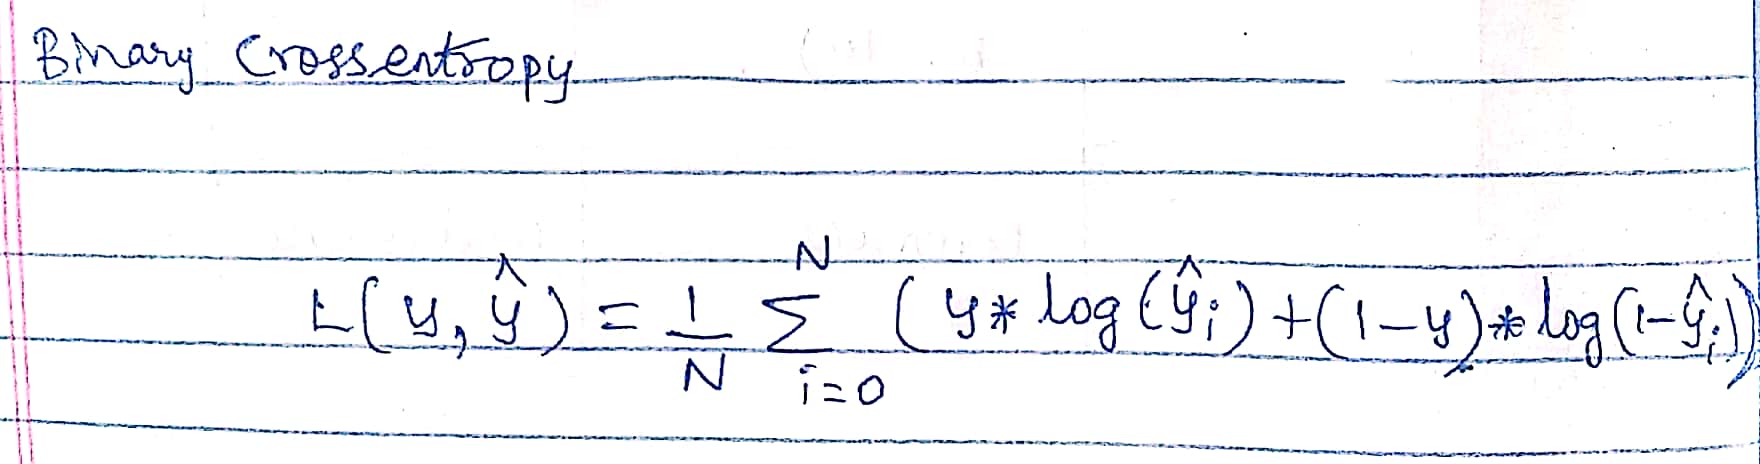 Binary Crossentropy
L(y, ŷ) = 1/N Σ_{i=0}^{N} (y * log(ŷ_i) + (1-y) * log(1-ŷ_i))